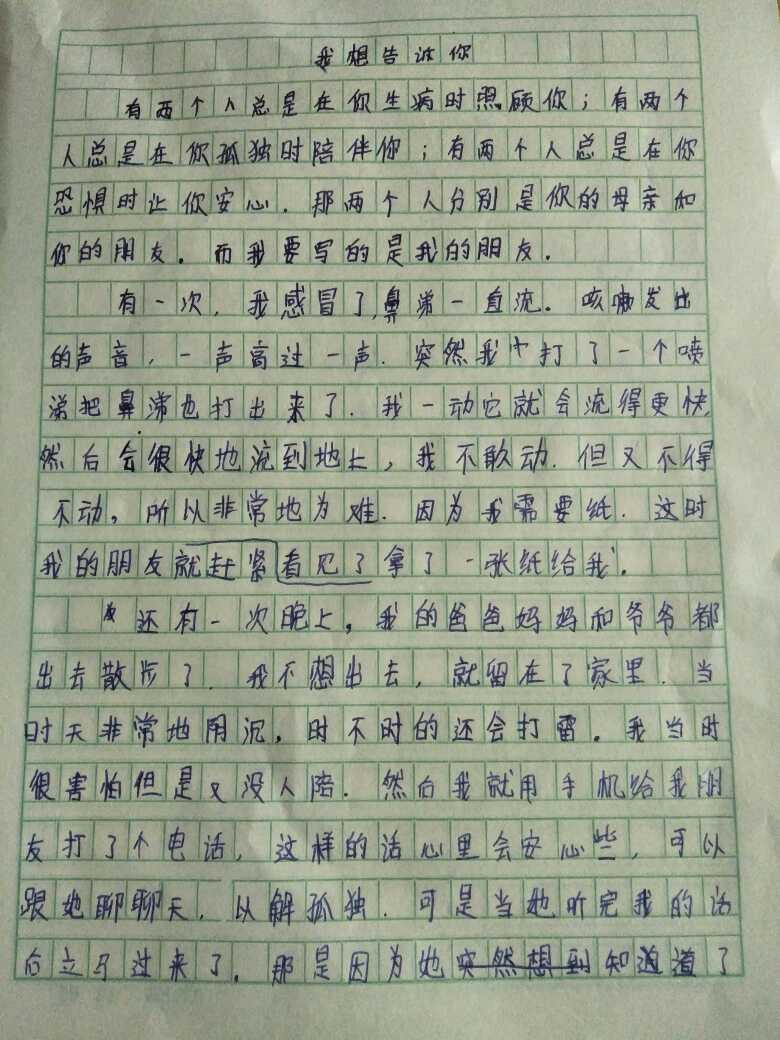 我想告诉你
有两个人总是在你生病时照顾你；有两个
人总是在你孤独时陪伴你；有两个人总是在你
恐惧时让你安心．那两个人分别是你的母亲和
你的朋友．而我要写的是我的朋友．
有一次，我感冒了，鼻涕一直流。咳嗽发出
的声音，一声高过一声．突然我打了一个喷
涕把鼻涕也打出来了．我一动它就会流得更快，
然后会很快地流到地上，我不敢动．但又不得
不动，所以非常地为难．因为我需要纸．这时
我的朋友就赶紧看见了拿了一张纸给我．
还有一次晚上，我的爸爸妈妈和爷爷都
出去散步了．我不想出去，就留在了家里．当
时天非常地阴沉，时不时的还会打雷。我当时
很害怕但是又没人陪．然后我就用手机给我朋
友打了个电话，这样的话心里会安心些，可以
跟她聊聊天，以解孤独．可是当她听完我的话
后立马过来了．那是因为她突然想到知道了